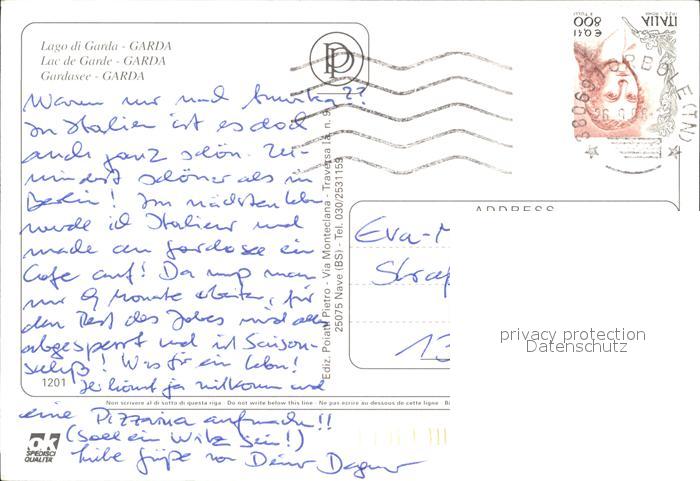 Lago di Garda - GARDA
Lac de Garde - GARDA
Gardasee - GARDA
PP
ITALIA
800
€ 0,41
38069 TORBOLE (TN)
Warum nur nach Amerika??
In Italien ist es doch
auch ganz schön. Zu-
mindest schöner als in
Berlin! Im nächsten Leben
werde ich Italiener und
mache am Gardasee ein
Cafe auf! Da muß man
nur 9 Monate arbeiten, für
den Rest des Jahres wird alles
abgesperrt und ist Saison-
schluß! Was für ein Leben!
Ihr könnt ja mitkommen und
eine Pizzaria aufmachen!!
(Soll ein Witz sein!)
Liebe Grüße von Deiner Dagmar
Ediz. Poiatti Pietro - Via Monteclana - Traversa Ia, n. 9
25075 Nave (BS) - Tel. 030/2531159
ADDRESS
Eva-
Straß
13
privacy protection
Datenschutz
1201
Non scrivere al di sotto di questa riga - Do not write below this line - Ne pas ecrire au dessous de cette ligne
ok
SPEDISCI
QUALITÀ